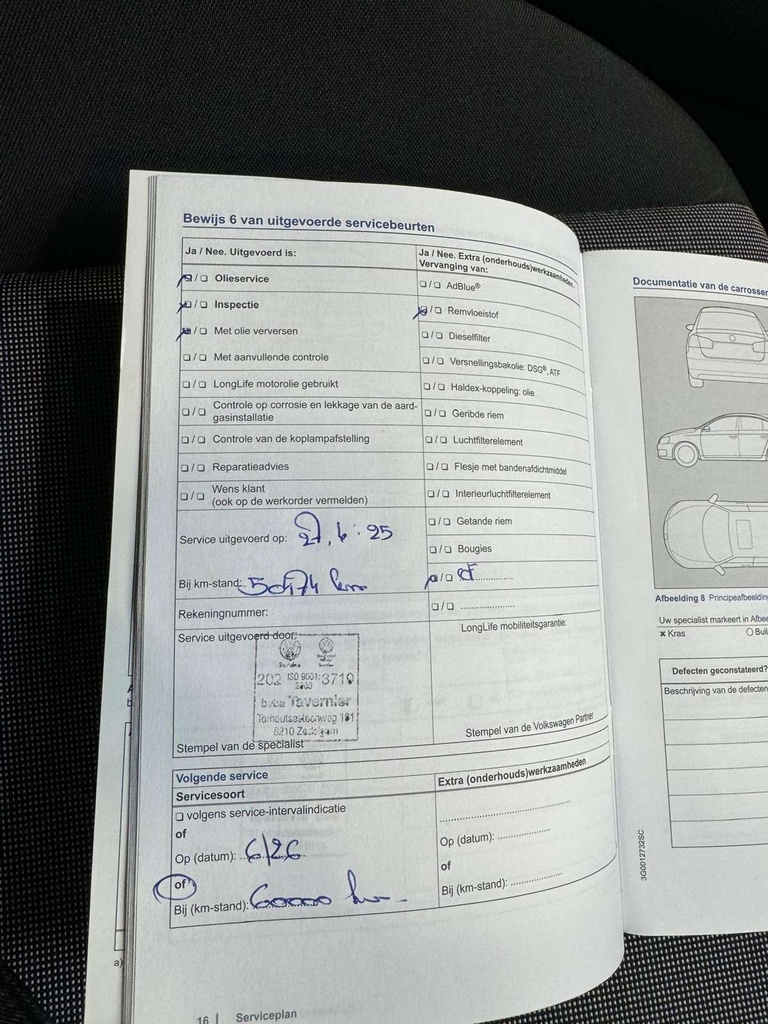 Bewijs 6 van uitgevoerde servicebeurten
Ja / Nee. Uitgevoerd is:
❑ / ❑ Olieservice
❑ / ❑ Inspectie
❑ / ❑ Met olie verversen
❑ / ❑ Met aanvullende controle
❑ / ❑ LongLife motorolie gebruikt
❑ / ❑ Controle op corrosie en lekkage van de aard-
gasinstallatie
❑ / ❑ Controle van de koplampafstelling
❑ / ❑ Reparatieadvies
❑ / ❑ Wens klant
(ook op de werkorder vermelden)
Service uitgevoerd op: 27.6.25
Bij km-stand: km
Rekeningnummer:
Service uitgevoerd door:
Service Service
202 ISO 9001: 3719
2000
bvba Tavernier
Torhoutsesteenweg 191
8210 Zedelgem
Stempel van de specialist
Ja / Nee. Extra (onderhouds)werkzaamheden.
Vervanging van:
❑ / ❑ AdBlue®
❑ / ❑ Remvloeistof
❑ / ❑ Dieselfilter
❑ / ❑ Versnellingsbakolie: DSG®, ATF
❑ / ❑ Haldex-koppeling: olie
❑ / ❑ Geribde riem
❑ / ❑ Luchtfilterelement
❑ / ❑ Flesje met bandenafdichtmiddel
❑ / ❑ Interieurluchtfilterelement
❑ / ❑ Getande riem
❑ / ❑ Bougies
❑ / ❑
❑ / ❑ ....................
LongLife mobiliteitsgarantie:
Stempel van de Volkswagen Partner
Volgende service
Servicesoort
❑ volgens service-intervalindicatie
of
Op (datum): 6/26
of
Bij (km-stand): 60000 km
Extra (onderhouds)werkzaamheden
................................................
Op (datum): ...................
of
Bij (km-stand): ...................
16 | Serviceplan
Documentatie van de carrosser
Afbeelding 8 Principeafbeelding
Uw specialist markeert in Afbee
× Kras ○ Bui
Defecten geconstateerd?
Beschrijving van de defecten
3G0012732SC
a)